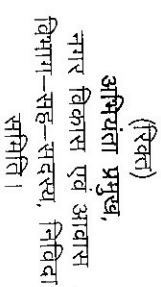 (रिक्त)
अभियंता प्रमुख,
नगर विकास एवं आवास
विभाग–सह–सदस्य, निविदा
समिति।